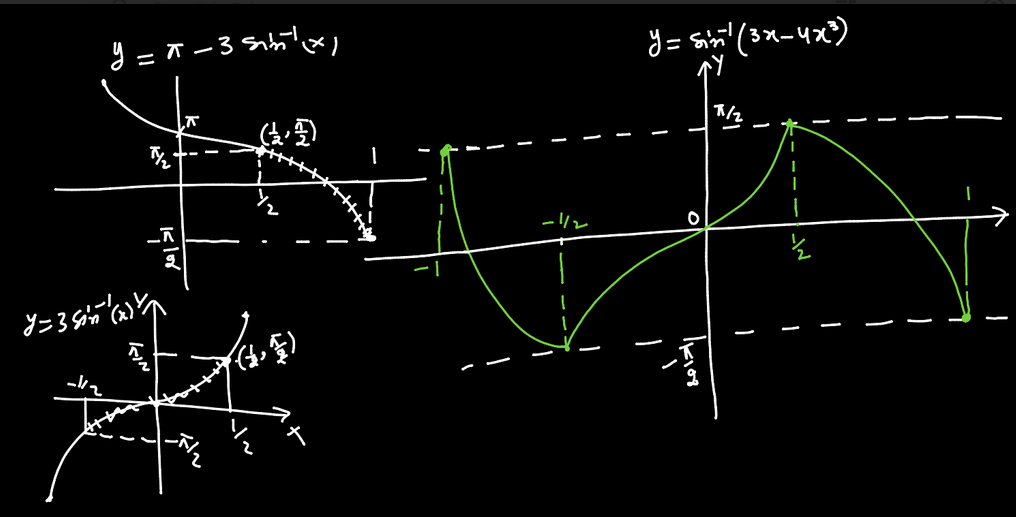 y = π - 3 sin⁻¹(x)
π
(1/2, π/2)
π/2
1
1/2
-π/2
y = 3 sin⁻¹(x) Y
π/2
(1/2, π/2)
-1/2
1/2
X
-π/2
y = sin⁻¹(3x - 4x³)
Y
π/2
-1/2
0
1
-1
1/2
-π/2